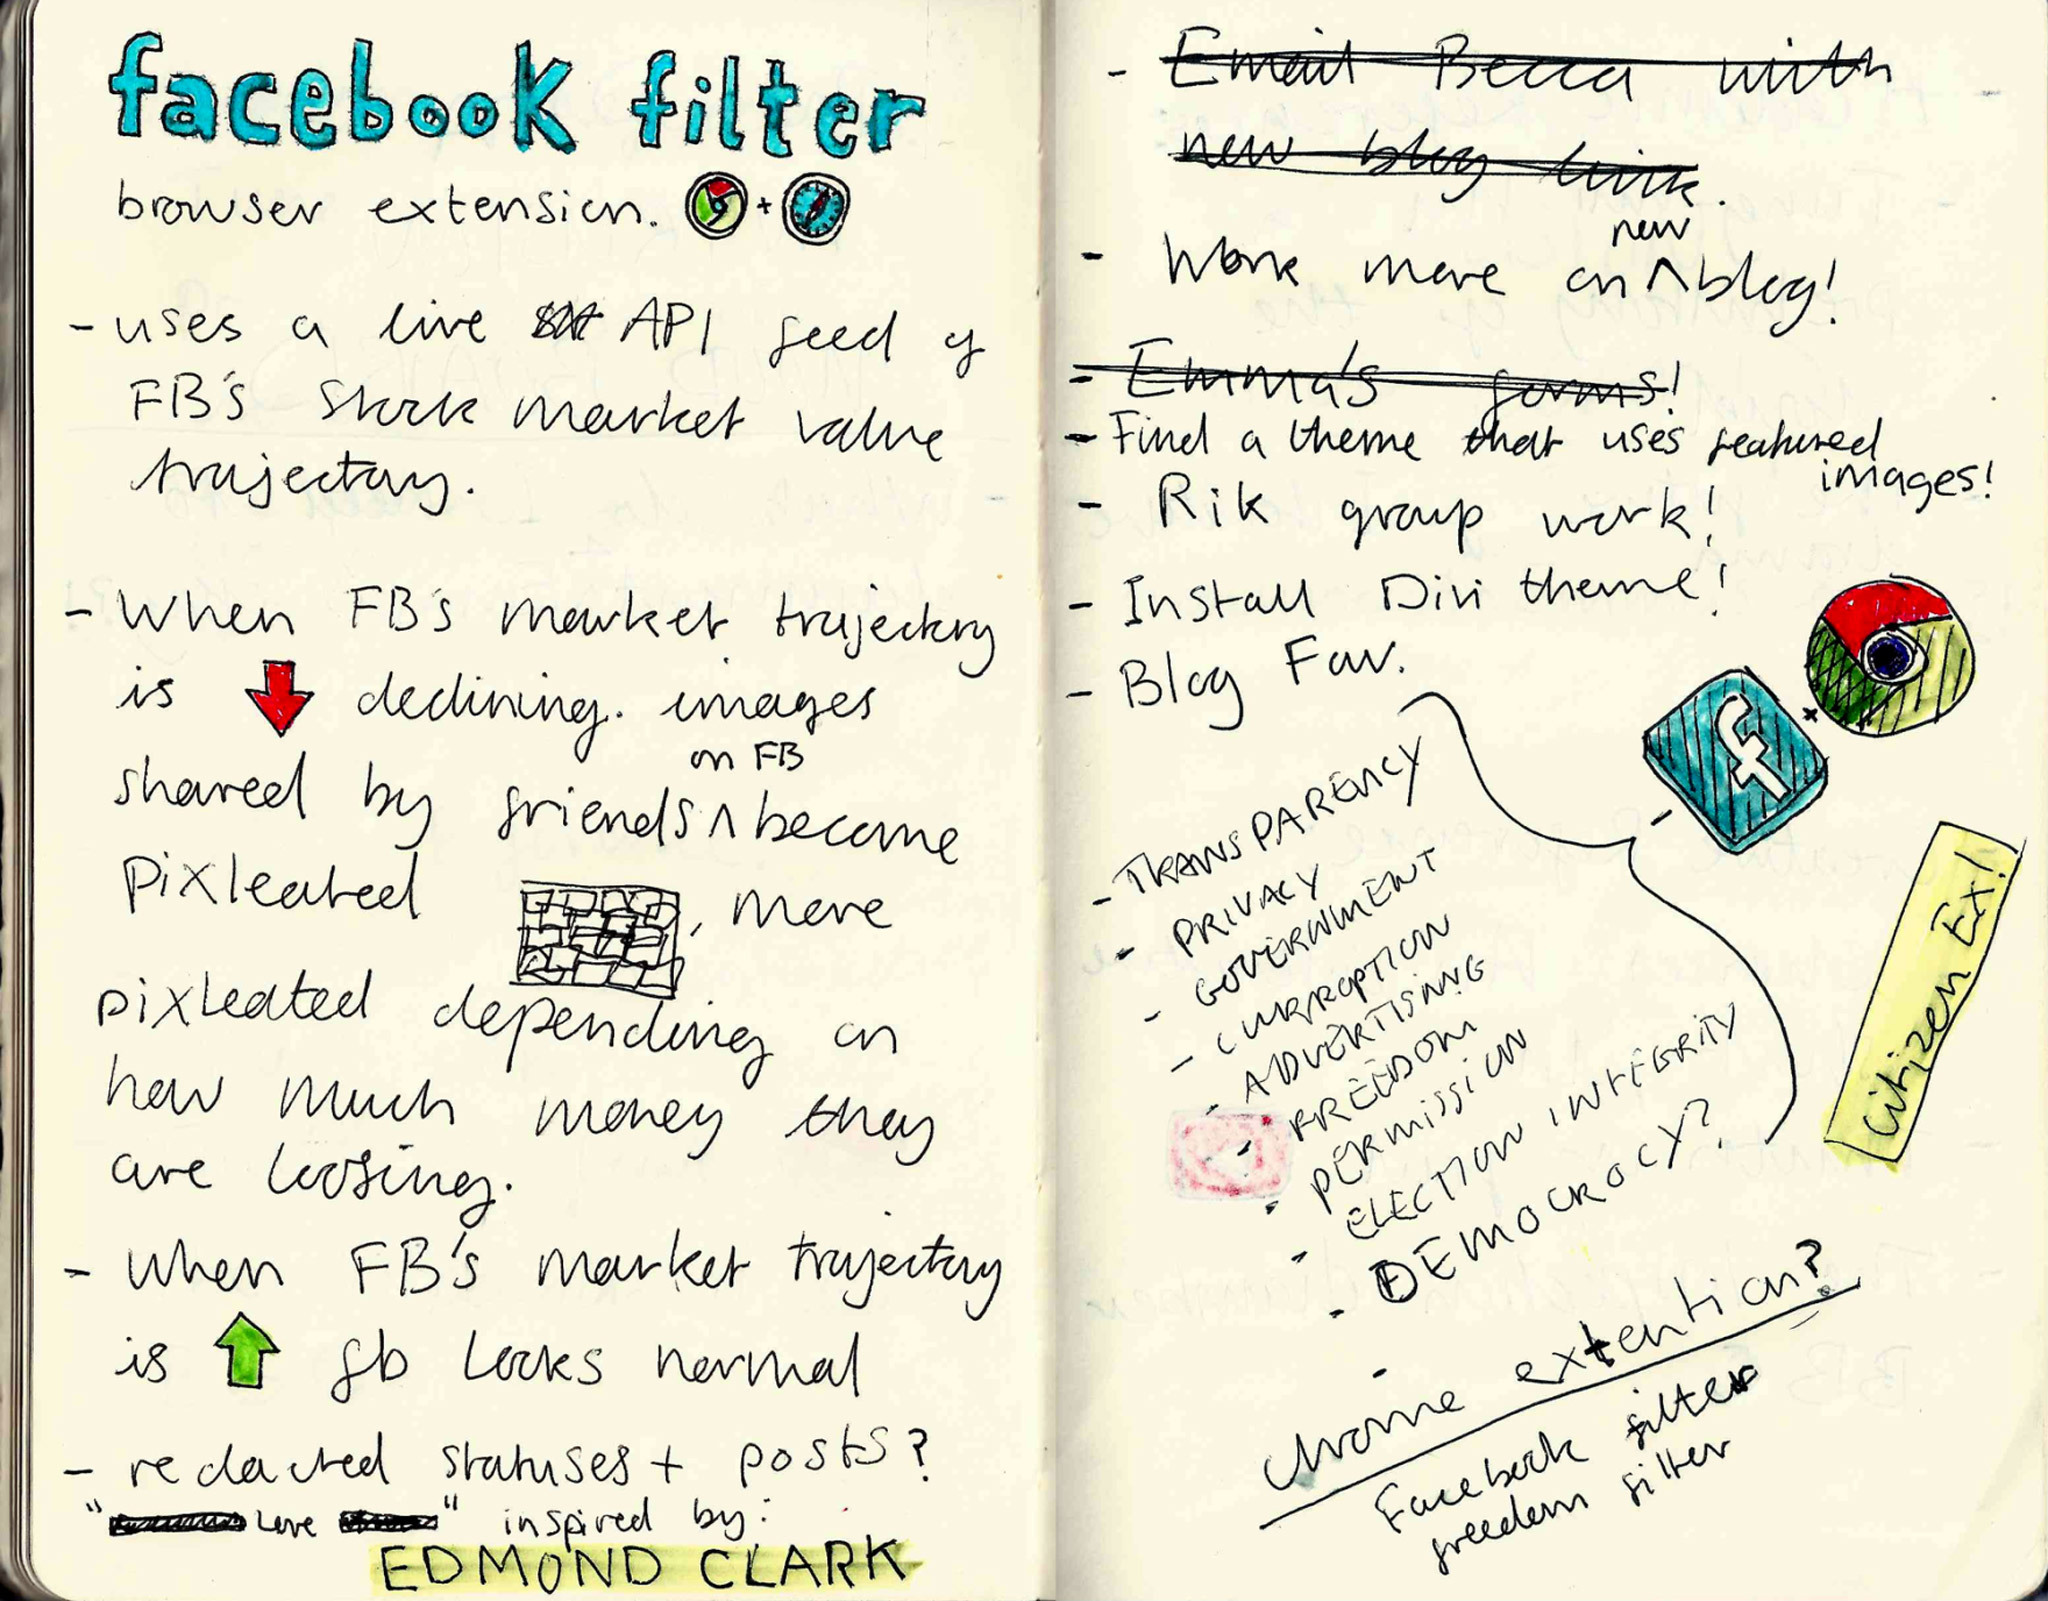 facebook filter
browser extension. +
- uses a live API feed of
FB's stock market value
trajectory.
- When FB's market trajectory
is declining. images
on FB
shared by friends ^ become
pixleated , more
pixleated depending on
how much money they
are loosing.
- When FB's market trajectory
is fb looks normal
- redacted statuses + posts?
" love " inspired by:
EDMOND CLARK
- Email Becca with
new blog link.
new
- Work more on ^ blog!
- Emma's forms!
- Find a theme that uses featured
images!
- Rik group work!
- Install Divi theme!
- Blog Fav.
- f +
- TRANSPARENCY
- PRIVACY
- GOVERNMENT
- CURROPTION
- ADVERTISING
- FREEDOM
- PERMISSION
- ELECTION INTEGRITY
- DEMOCROCY?
Citizen Ex!
- chrome extention?
Facebook filter
freedom filter